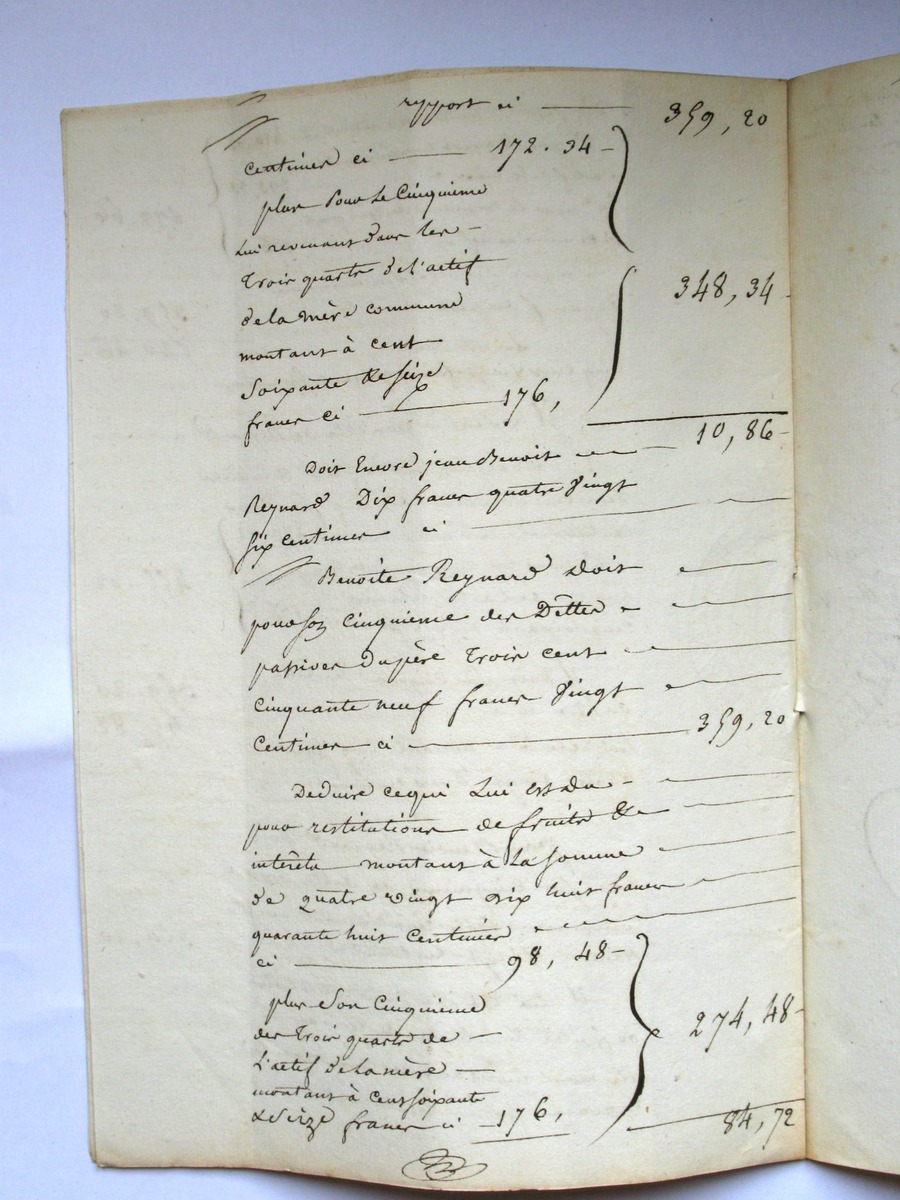 rapport ci — 359, 20
centimes ci — 172. 34 –
plus Pour Le Cinquieme
Lui revenant dans les –
Trois quarts de l'actif
de la mère commune 348, 34
montant à cent
Soixante & seize
francs ci — 176,
10, 86
Doit Encore jean Benoit
Reynard Dix francs quatre Vingt
six centimes ci —
Benoite Reynard doit
pour son Cinquieme des Dêttes
passives du père Trois cent
Cinquante neuf francs Vingt
Centimes ci — 359, 20
Deduire ce qui Lui est du –
pour restitutions de fruits &
intérêts montant à La somme
de quatre vingt dix huit francs
quarante huit Centimes
ci — 98, 48 –
plus Son Cinquieme
des Trois quarts de –
L'actif de la mère – 274, 48 –
montant à cent soixante
& seize francs ci – 176,
84, 72